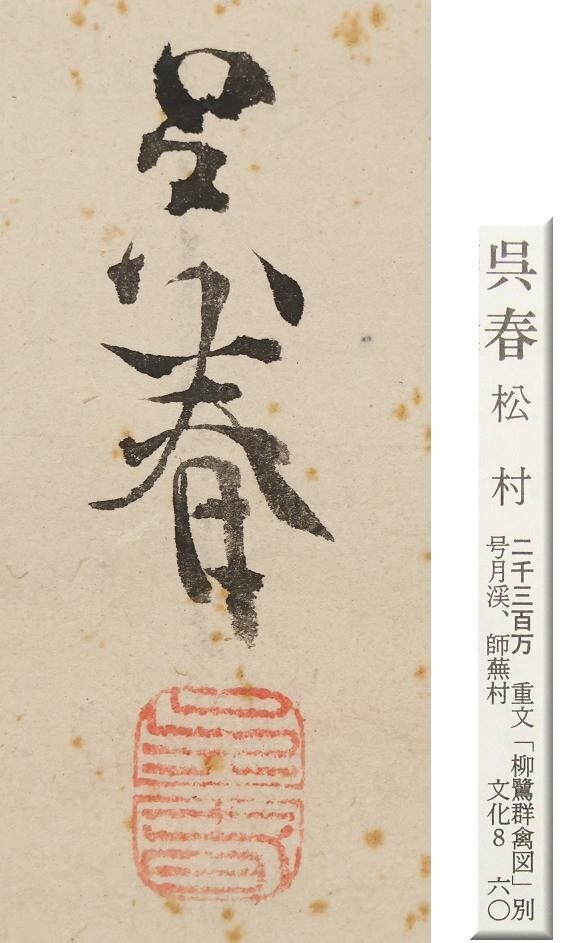 呉春
呉春 松村
二千三百万 重文「柳鷺群禽図」別
号月渓、師蕪村 文化8 六〇